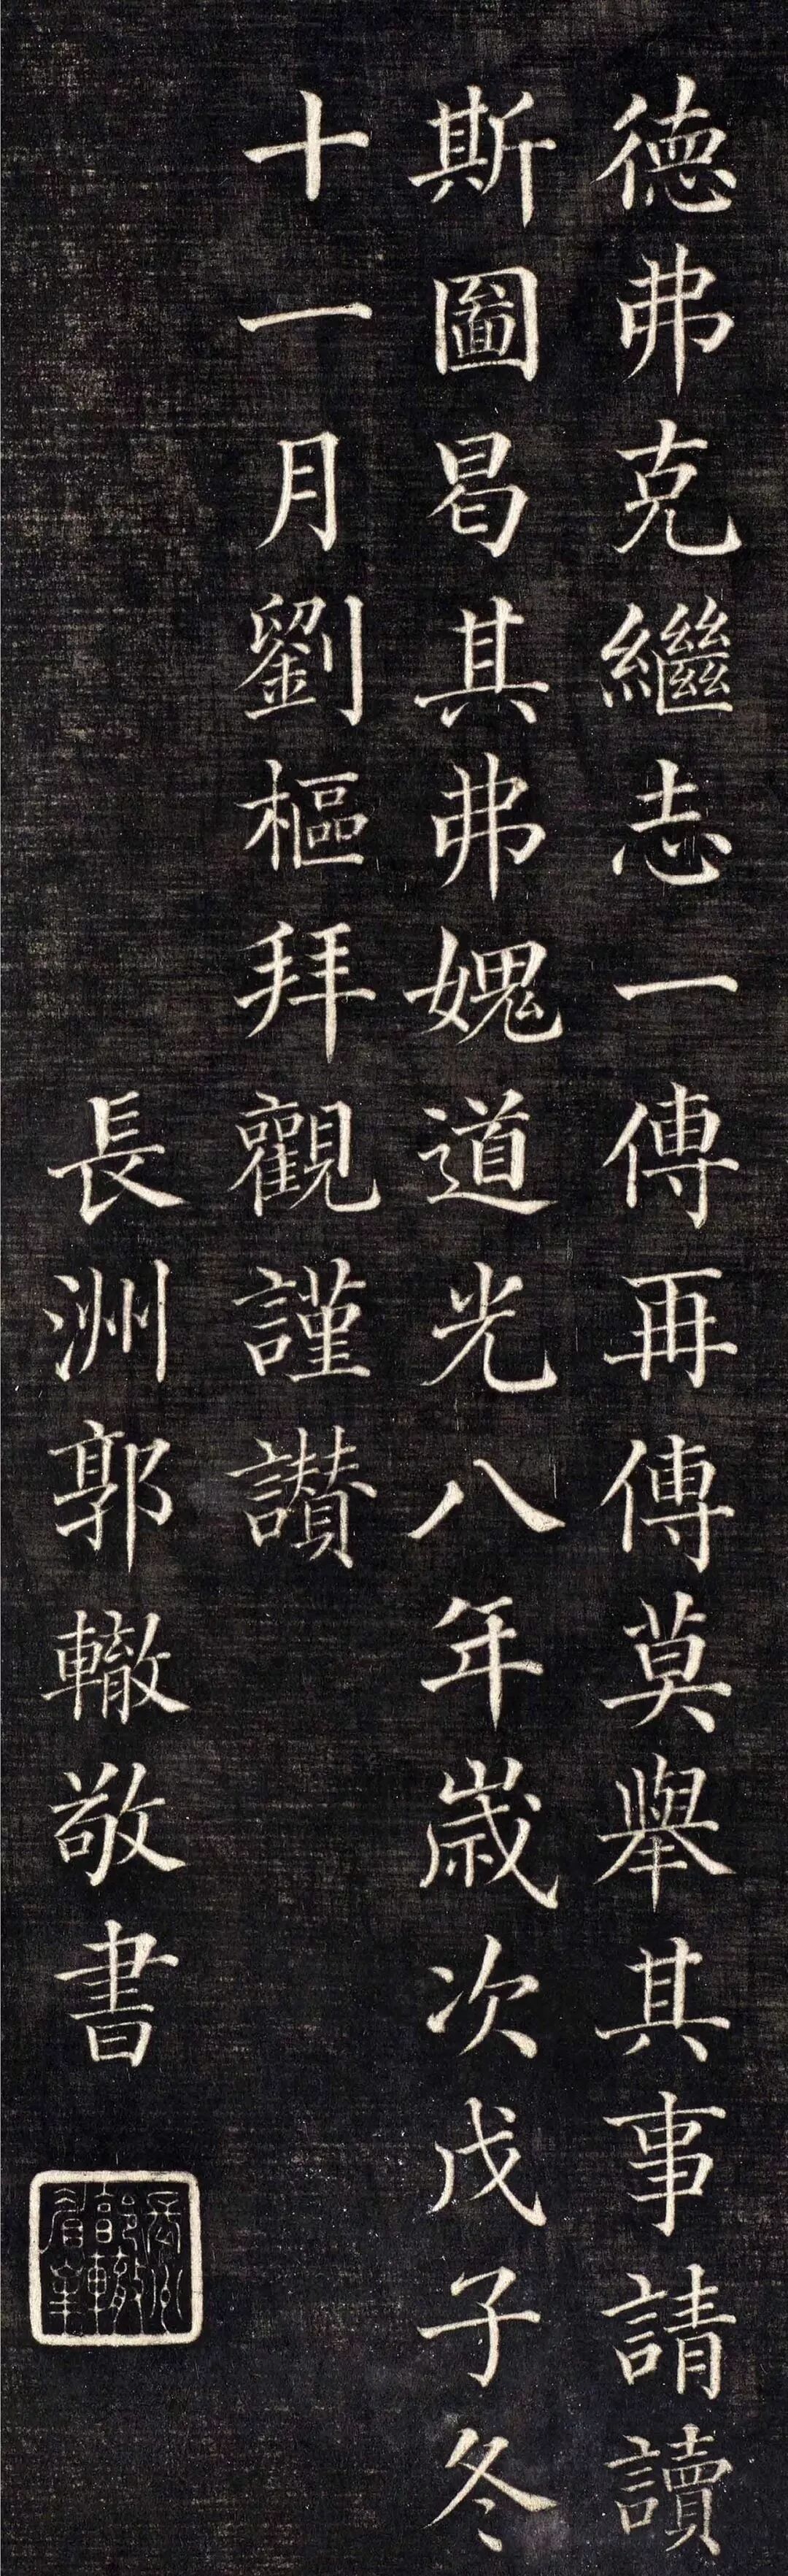 德弗克繼志一傳再傳莫舉其事請讀
斯圖曷其弗媿道光八年歲次戊子冬
十一月劉樞拜觀謹讃
長洲郭轍敬書